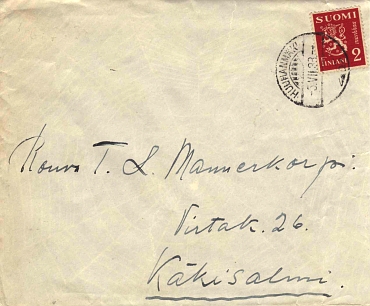 SUOMI
2
FINLAND
Rouva T. L. Mannerkorpi.
Virtak. 26.
Käkisalmi.